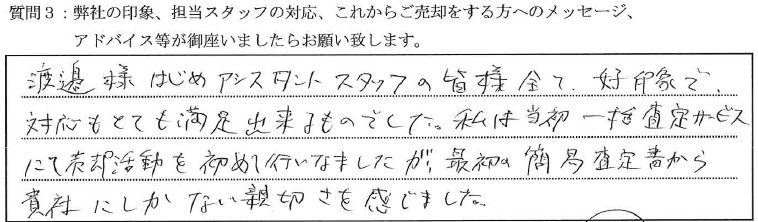 質問３：弊社の印象、担当スタッフの対応、これからご売却をする方へのメッセージ、
アドバイス等が御座いましたらお願い致します。
渡邊様はじめアシスタントスタッフの皆様全て、好印象で、
対応もとても満足出来るものでした。私は当初一括査定サービス
にて売却活動を初めて行いなましたが、最初の簡易査定書から
貴社にしかない親切さを感じました。